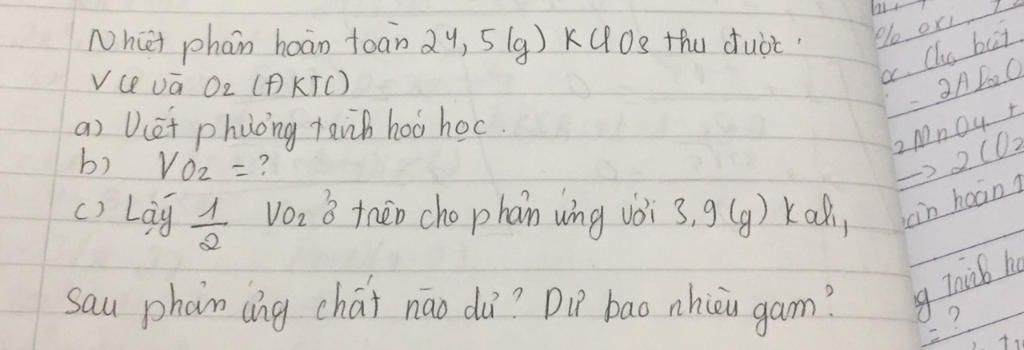 Nhiệt phân hoàn toàn 24,5 (g) KClO3 thu được
V lít và O2 (ĐKTC)
a) Viết phương trình hoá học.
b) VO2 = ?
c) Lấy 1/2 VO2 ở trên cho phản ứng với 3,9 (g) Kali,
sau phản ứng chất nào dư? Dư bao nhiêu gam?
% oxi
Cho biết
2MnO4 +
-> 2CO2
hoàn
trình
= ?